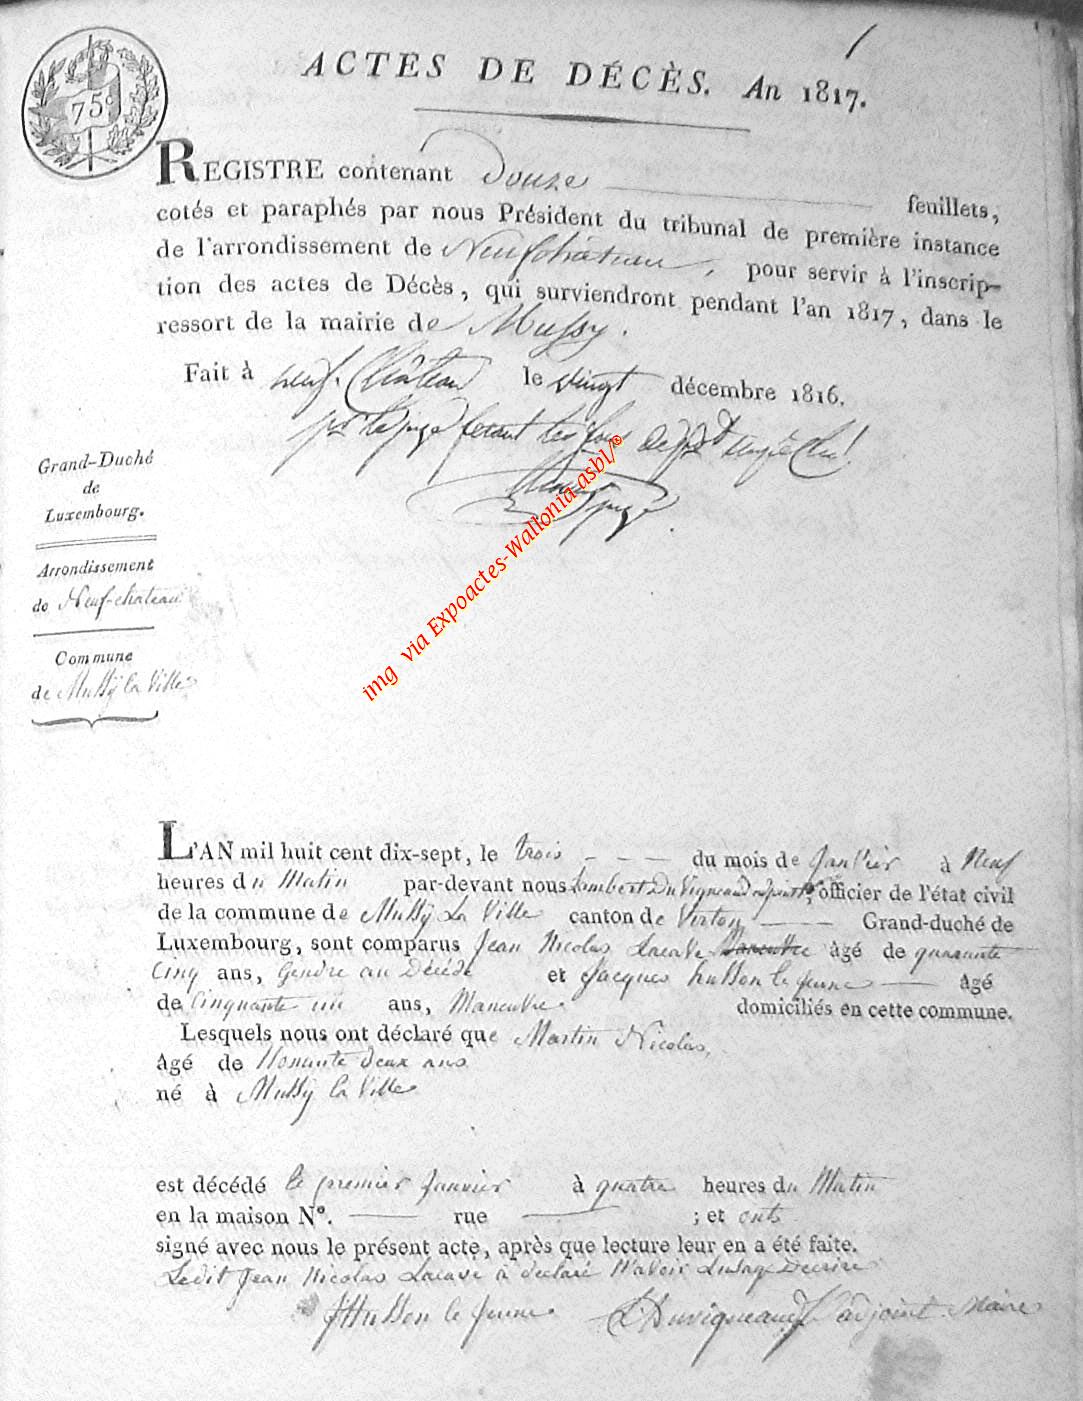 75c
ACTES DE DÉCÈS. An 1817.
REGISTRE contenant Douze feuillets,
cotés et paraphés par nous Président du tribunal de première instance
de l'arrondissement de Neufchâteau, pour servir à l'inscrip-
tion des actes de Décès, qui surviendront pendant l'an 1817, dans le
ressort de la mairie de Mussy.
Fait à neuf-Château le vingt décembre 1816.
le juge ferant les
juge
Grand-Duché
de
Luxembourg.
Arrondissement
de Neuf-chateau
Commune
de Mussÿ la Ville
img via Expoactes-Wallonia-asbl/®
L'AN mil huit cent dix-sept, le trois - - - du mois de Janvier à Neuf
heures du Matin par-devant nous Lambert Duvigneaud adjoint, officier de l'état civil
de la commune de Mussÿ La Ville canton de Virton Grand-duché de
Luxembourg, sont comparus Jean Nicolas Lacave Maneuvre âgé de quarante
Cinq ans, Gendre au Décédé et Jacques husson le jeune âgé
de Cinquante un ans, Maneuvre domiciliés en cette commune.
Lesquels nous ont déclaré que Martin Nicolas,
âgé de Nonante deux ans
né à Mussÿ la Ville
est décédé le premier Janvier à quatre heures du Matin
en la maison N°. rue ; et onts
signé avec nous le présent acte, après que lecture leur en a été faite.
Ledit Jean Nicolas Lacave a déclaré N'avoir Lusage Decrire
JHusson le Jeune L. Duvigneaud l'adjoint Maire